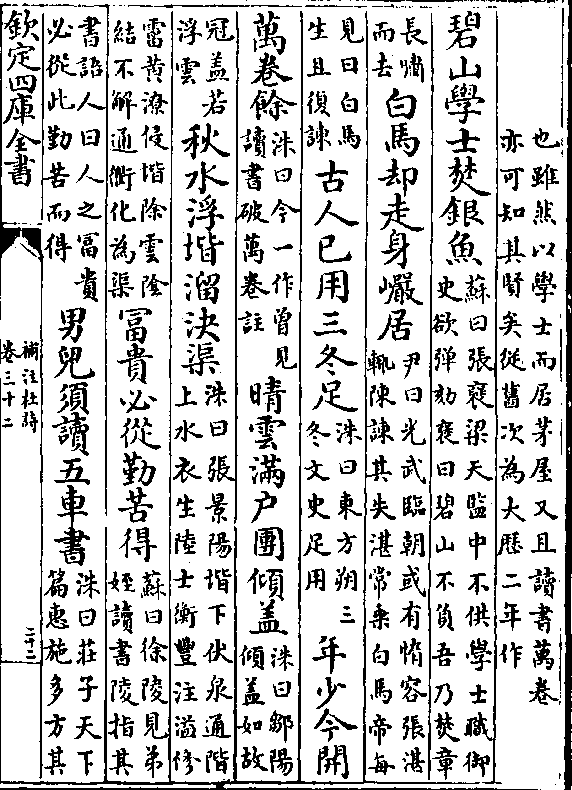 也雖然以學士而居茅屋又且讀書萬卷
亦可知其賢矣從舊次為大厯二年作
碧山學士焚銀魚
蘇曰張裦梁天監中不供學士職御
史欲弹劾裦曰碧山不負吾乃焚章
長嘯
而去
白馬却走身巖居
尹曰光武臨朝或有惰容張湛
輒陳諫其失湛常乗白馬帝每
見曰白馬
生且復諫
古人已用三冬足
洙曰東方朔三
冬文史足用
年少今開
萬卷餘
洙曰今一作曽見
讀書破萬卷註
晴雲滿户團傾盖
洙曰鄒陽
傾盖如故
冠盖若
浮雲
秋水浮堦溜决渠
洙曰張景陽堦下伏泉通階
上水衣生陸士衡豐注溢修
霤黄潦侵堦除雲陰
結不解通衢化為渠
冨貴必從勤苦得
蘇曰徐陵見弟
姪讀書陵指其
書語人曰人之冨貴
必從此勤苦而得
男兒須讀五車書
洙曰莊子天下
篇惠施多方其
欽定四庫全書
補注杜詩
卷三十二